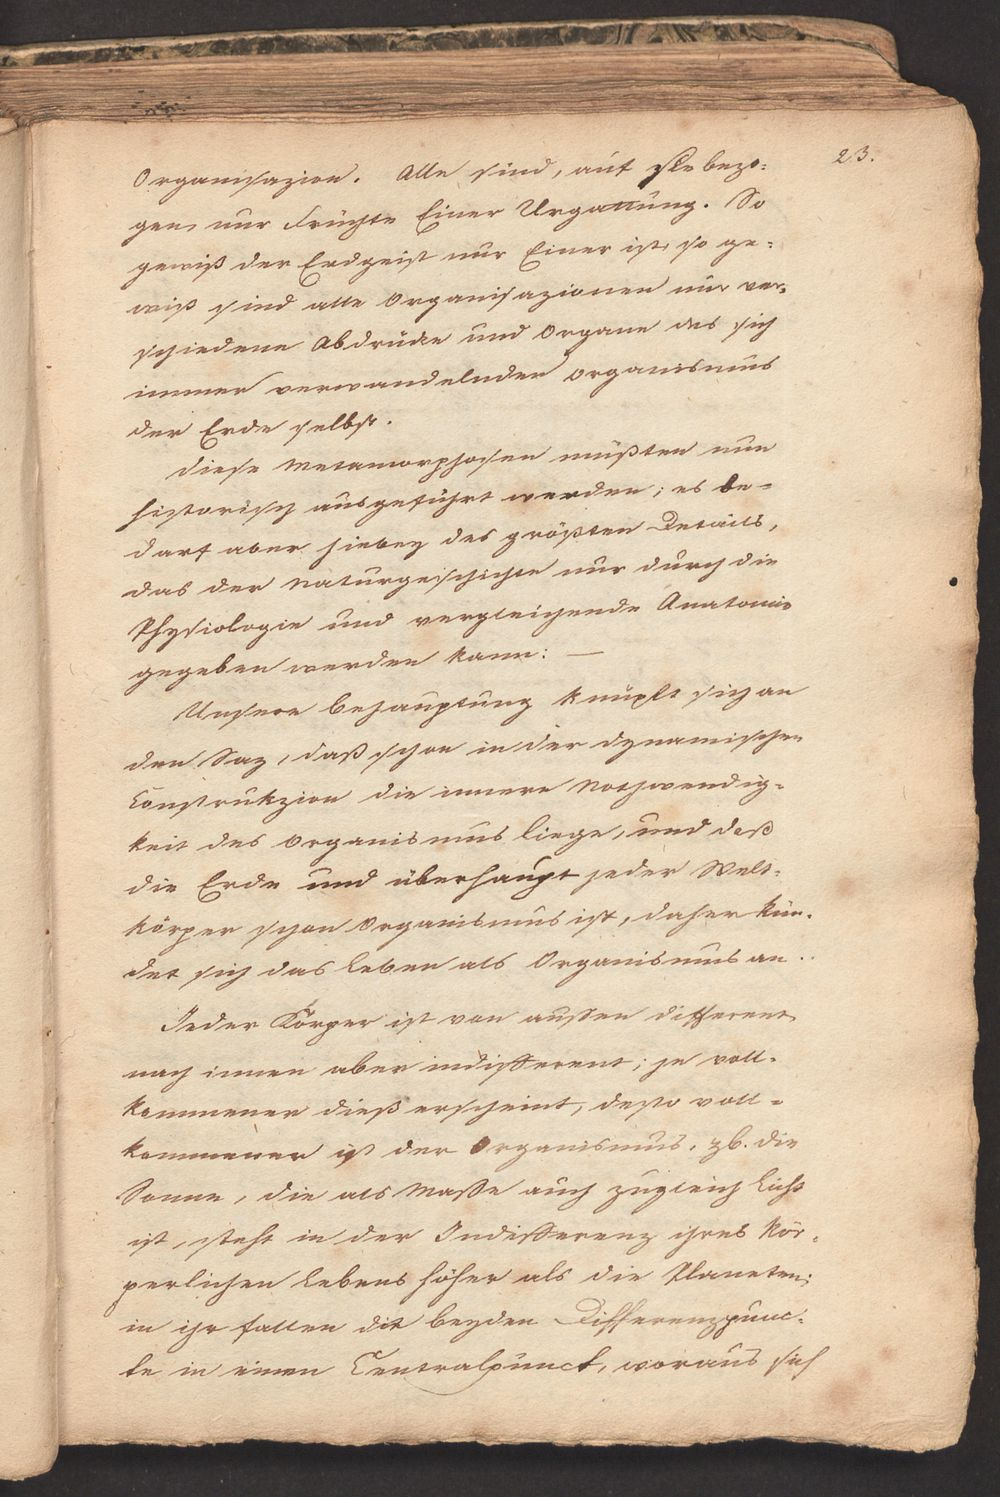 23.
Organisazion. Alle sind, auf sie bezo-
gen, nur Früchte Einer Urgattung. So
gewiß der Erdgeist nur Einer ist, so ge-
wiß sind alle Organisazionen nur ver-
schiedene Abdrücke und Organe des sich
immer verwandelnden Organismus
der Erde selbst.
Diese Metamorphosen müßten nun
historisch ausgeführt werden; es be-
darf aber hiebey des größten Details,
das der Naturgeschichte nur durch die
Physiologie und vergleichende Anatomie
gegeben werden kann: —
Unsere Behauptung knüpft sich an
den Saz, daß schon in der dynamischen
Construkzion die innere Nothwendig-
keit des Organismus liege, und daß
die Erde und überhaupt jeder Welt-
körper schon Organismus ist, daher kün-
det sich das Leben als Organismus an.
Jeder Körper ist von aussen different,
nach innen aber indifferent; je voll-
kommener dieß erscheint, desto voll-
kommener ist der Organismus. zb. die
Sonne, die als Masse auch zugleich Licht
ist, steht in der Indifferenz ihres kör-
perlichen Lebens höher als die Planeten;
in ihr fallen die beyden Differenzpunc-
te in einen Centralpunct, woraus sich